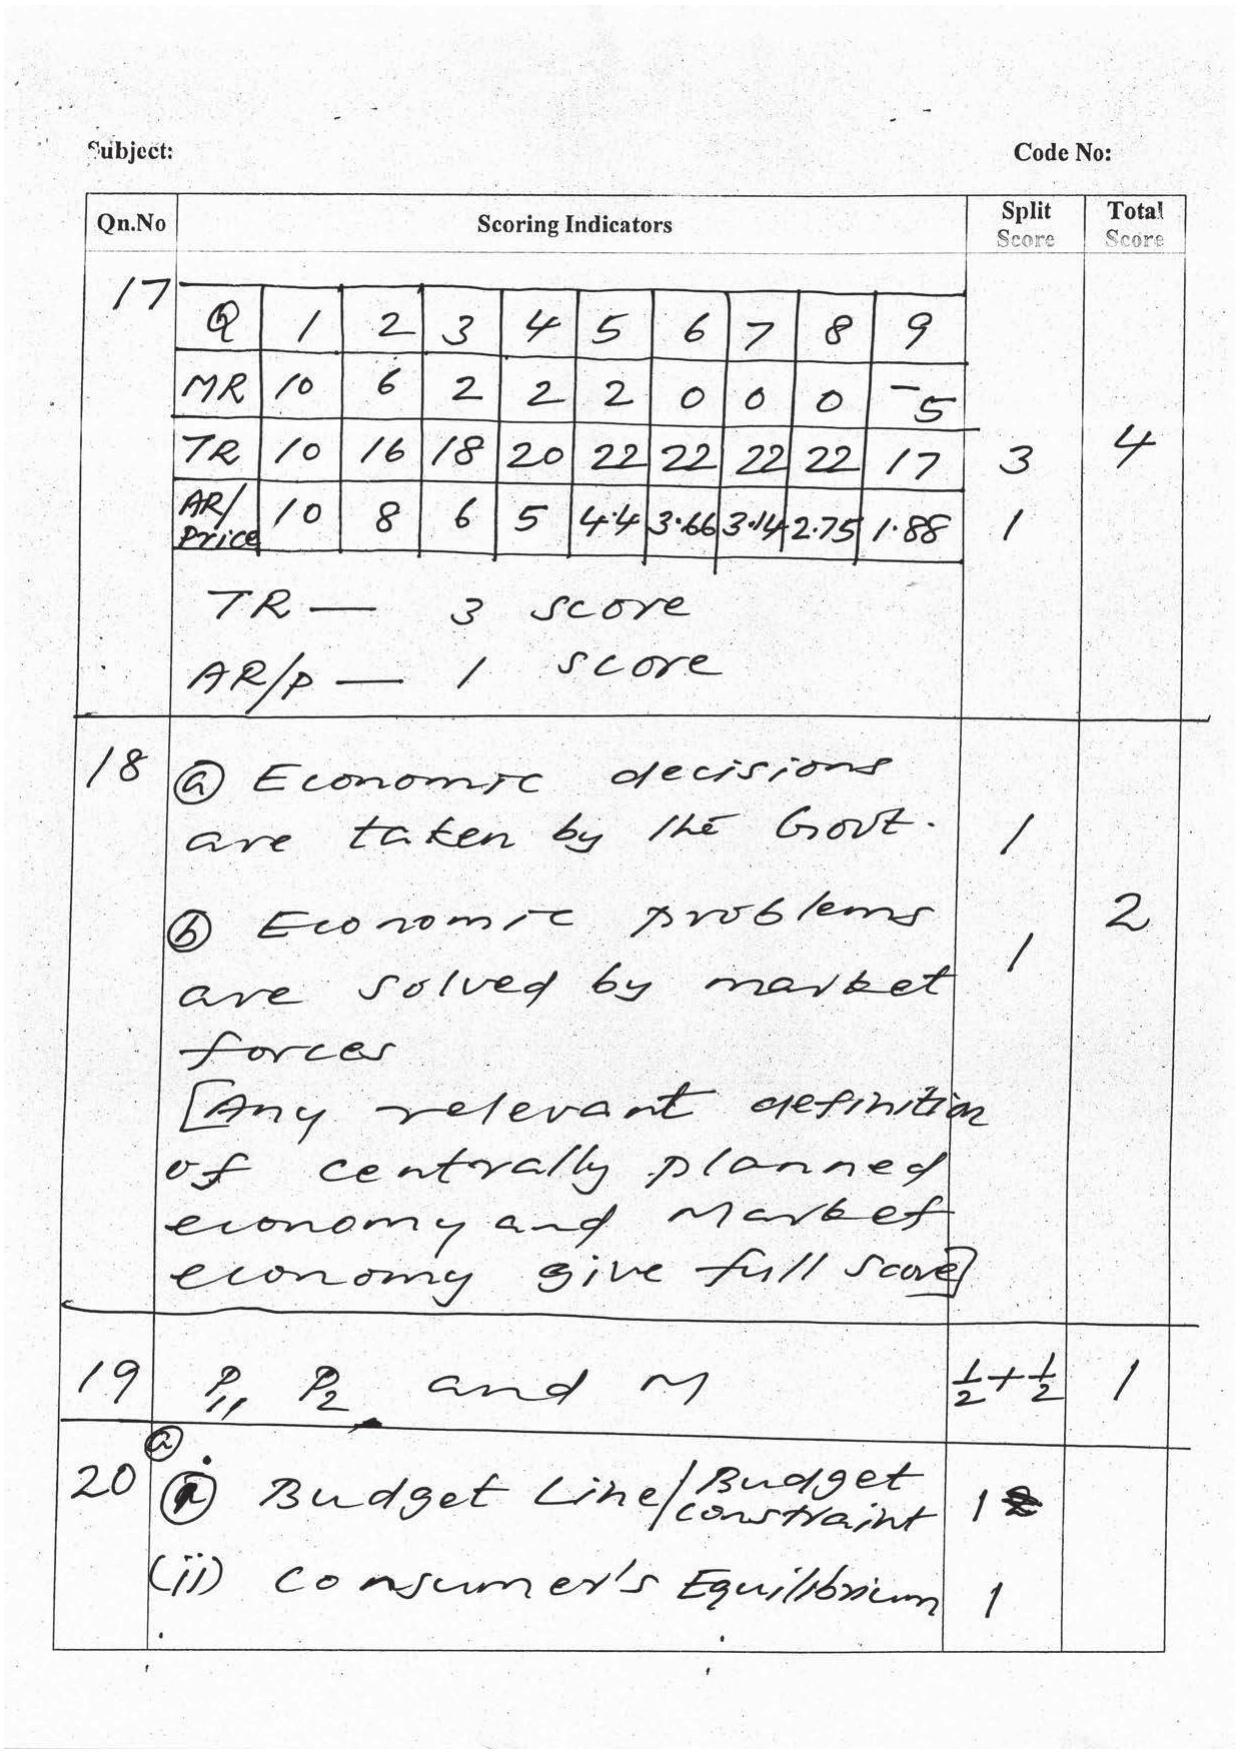 Subject: Code No:
Qn.No Scoring Indicators Split Score Total Score
17
Q 1 2 3 4 5 6 7 8 9
MR 10 6 2 2 2 0 0 0 -5
TR 10 16 18 20 22 22 22 22 17 3 4
AR/Price 10 8 6 5 4.4 3.66 3.14 2.75 1.88 1
TR — 3 score
AR/P — 1 score
18 (a) Economic decisions
are taken by the Govt. 1
(b) Economic problems 2
are solved by market 1
forces
[Any relevant definition
of centrally planned
economy and Market
economy give full score]
19 P1, P2 and M 1/2+1/2 1
20 (a) (i) Budget Line/Budget constraint 1
(ii) Consumer's Equilibrium 1